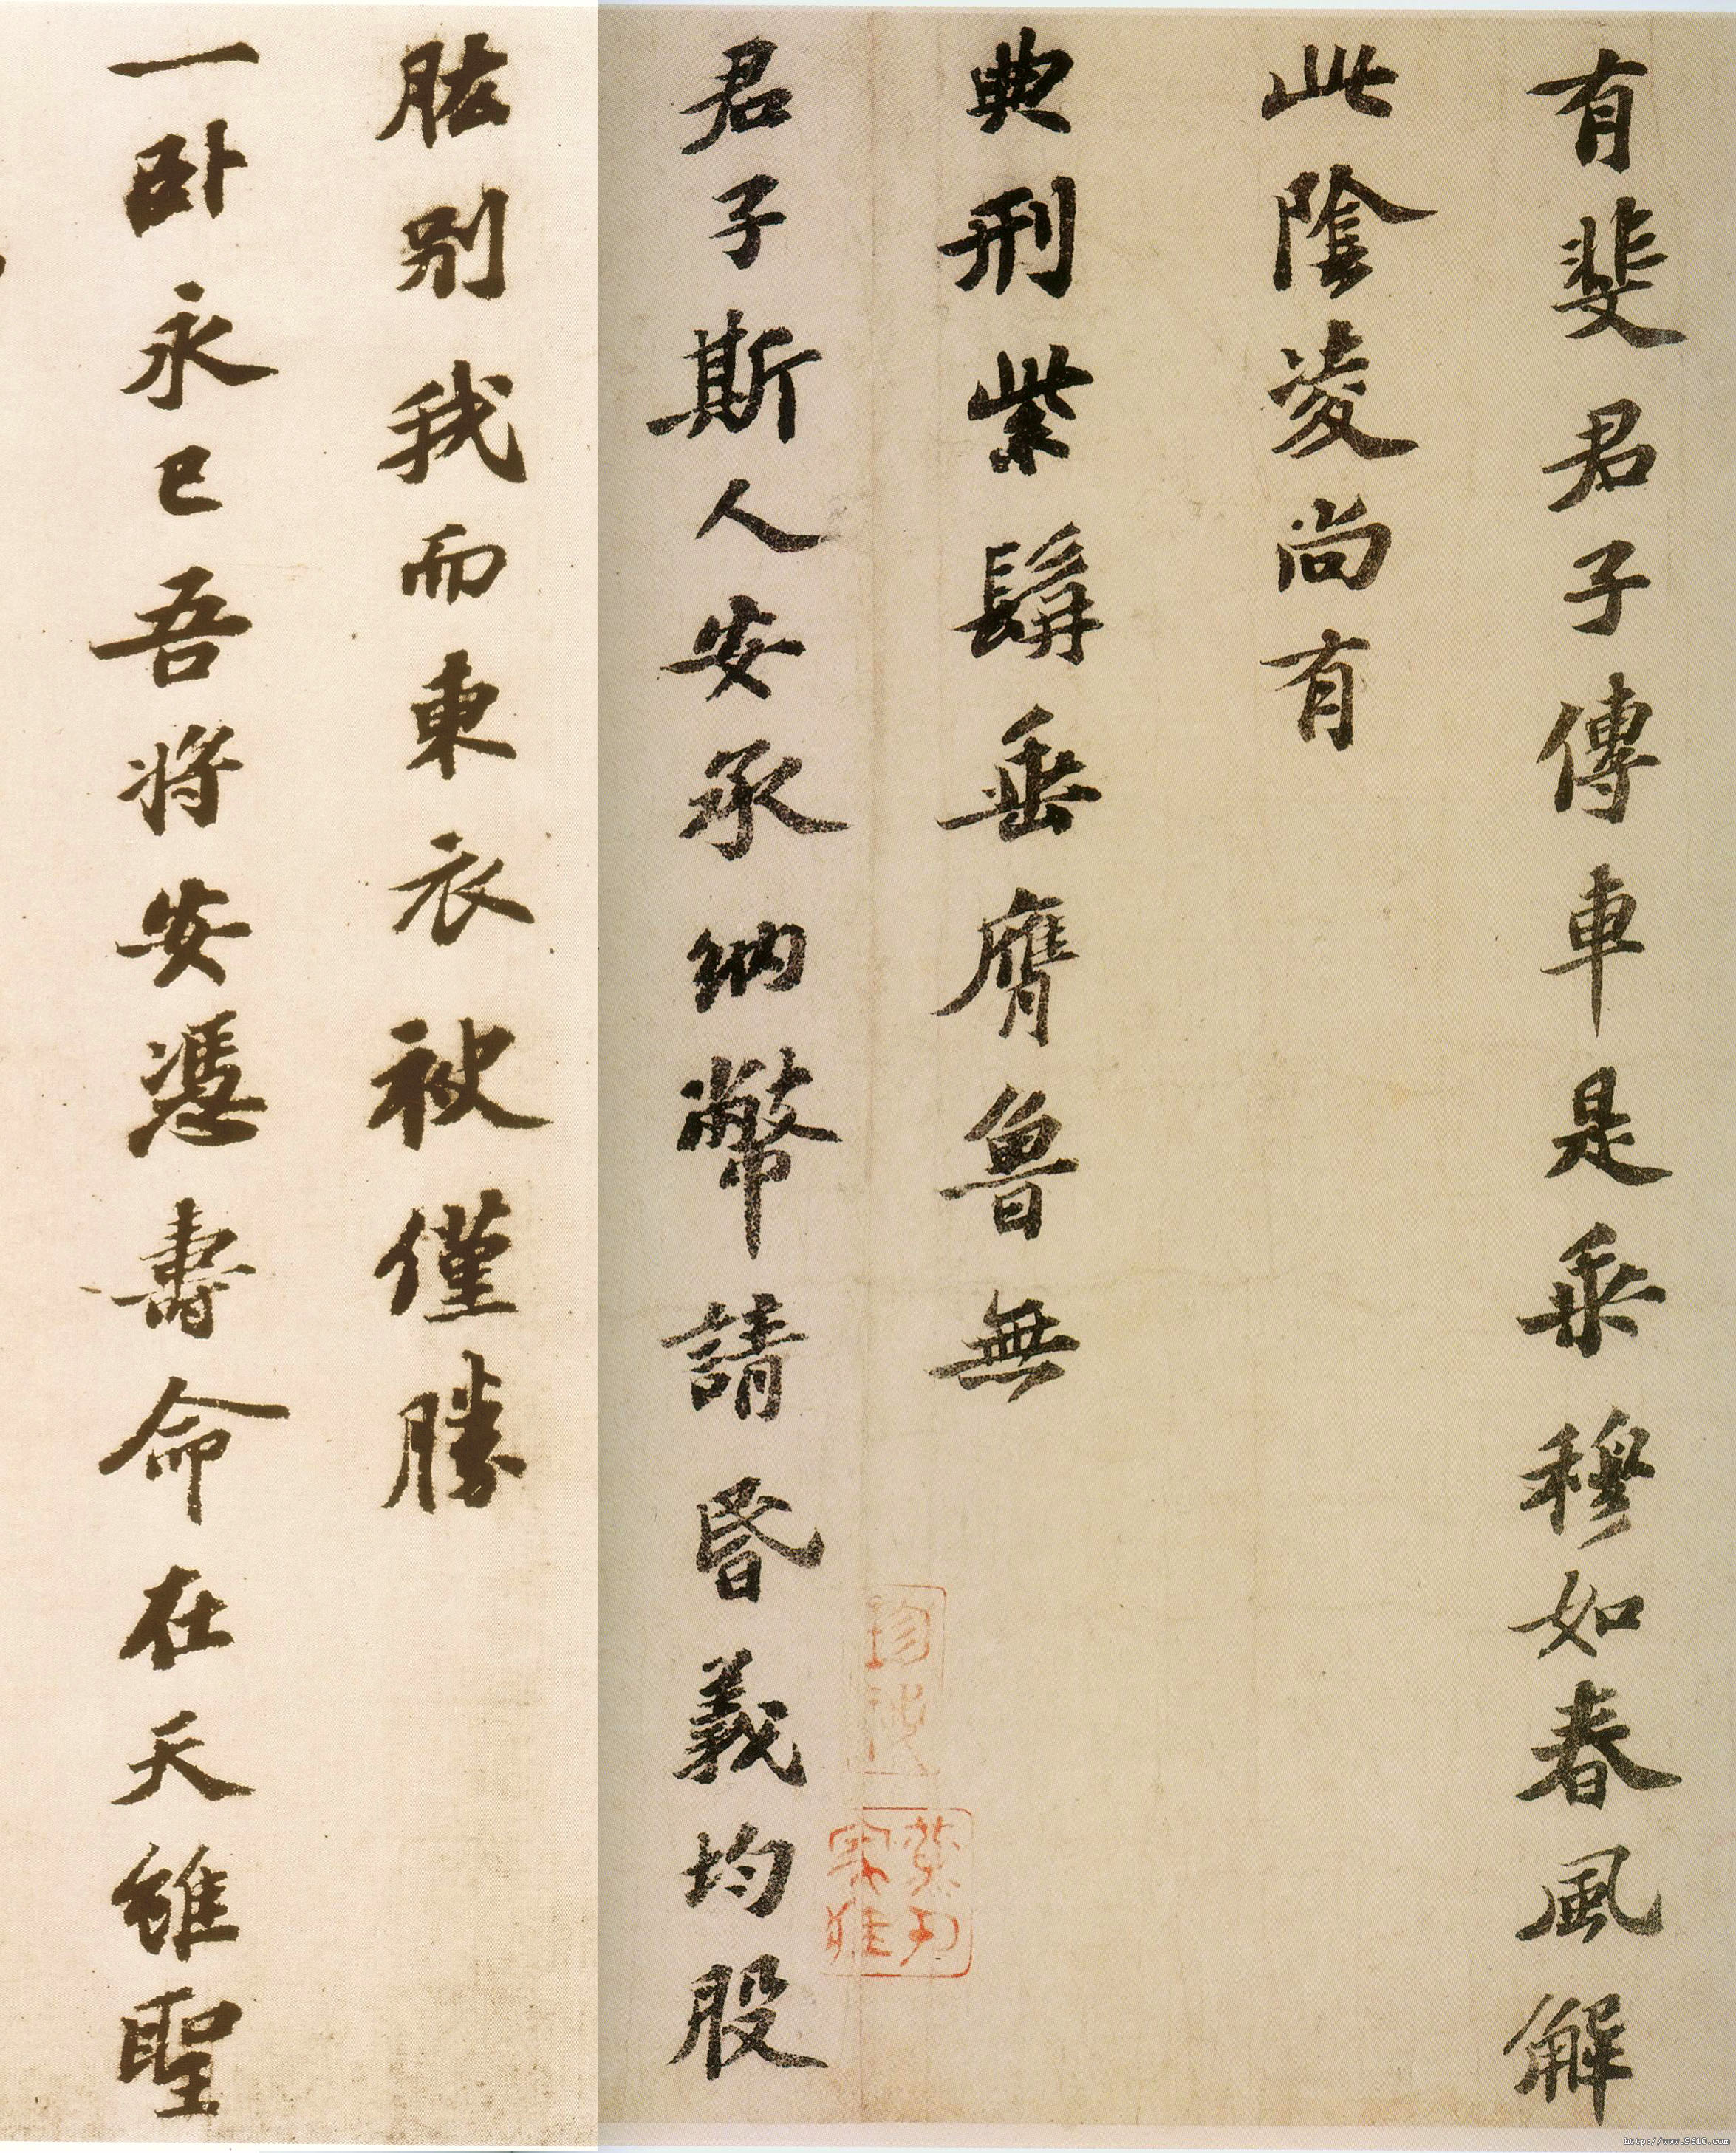 有斐君子傳車是乘穆如春風解
此陰凌尚有
典刑紫髯垂膺魯無
君子斯人安承納幣請昏義均股
肱別我而東衣袂僅勝
一卧永已吾將安憑壽命在天雖聖
http://www.9610.com